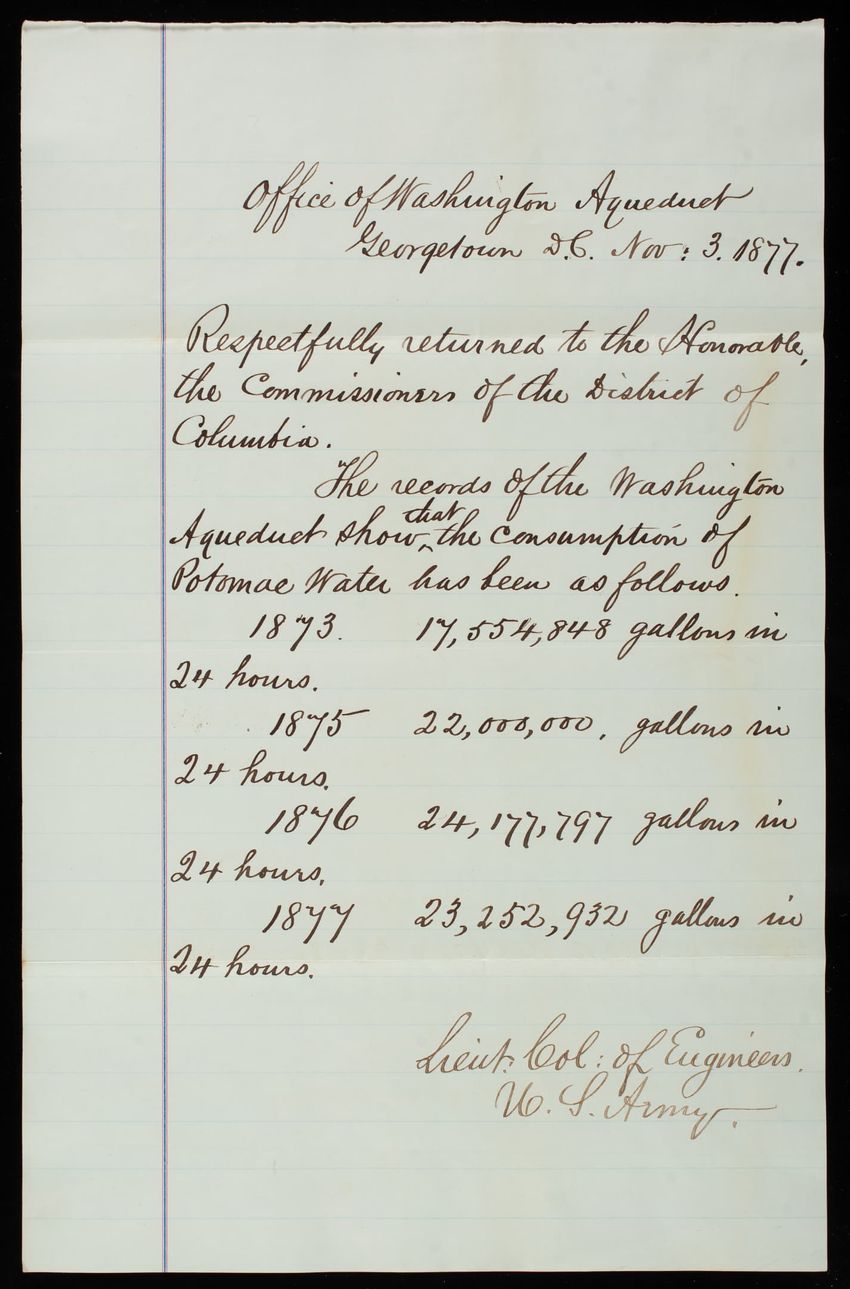 Office of Washington Aqueduct
Georgetown D.C. Nov: 3. 1877.
Respectfully returned to the Honorable,
the Commissioners of the District of
Columbia.
The records of the Washington
Aqueduct show that the consumption of
Potomac Water has been as follows.
1873. 17,554,848 gallons in
24 hours.
1875 22,000,000, gallons in
24 hours.
1876 24,177,797 gallons in
24 hours.
1877 23,252,932 gallons in
24 hours.
Lieut. Col: of Engineers.
U. S. Army.